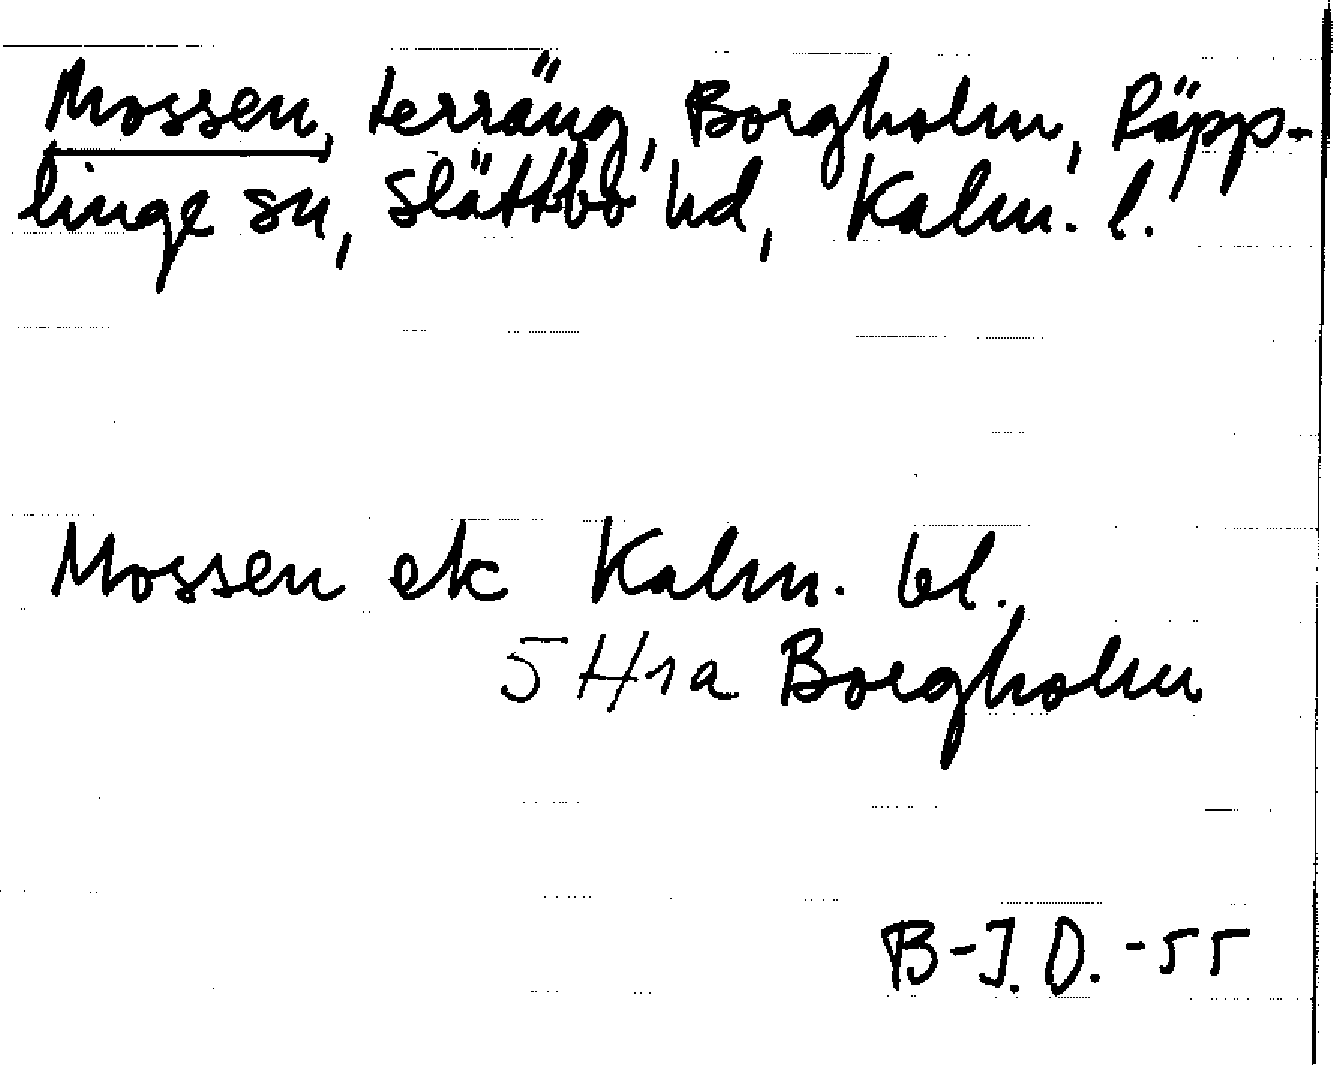 Mossen, terräng, Borgholm, Räpp-
linge sn, Slättbo hd, Kalm. l.
Mossen ek Kalm. bl.
5 H 1a Borgholm
B-J. O. -55